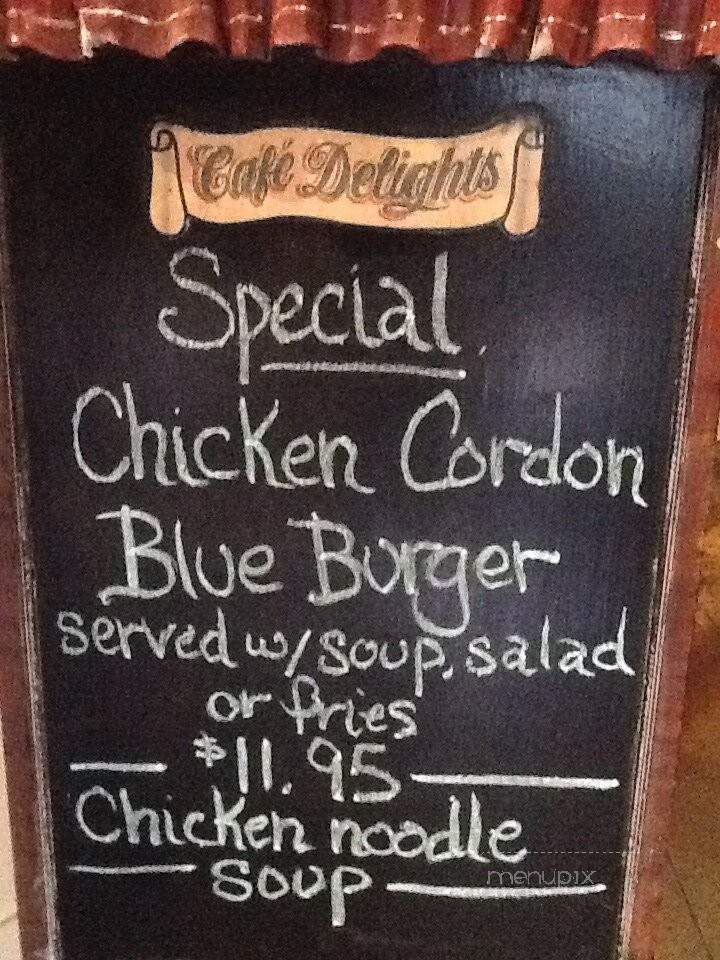 Café Delights
Special
Chicken Cordon
Blue Burger
served w/ soup, salad
or fries
$11.95
Chicken noodle
soup
menupix